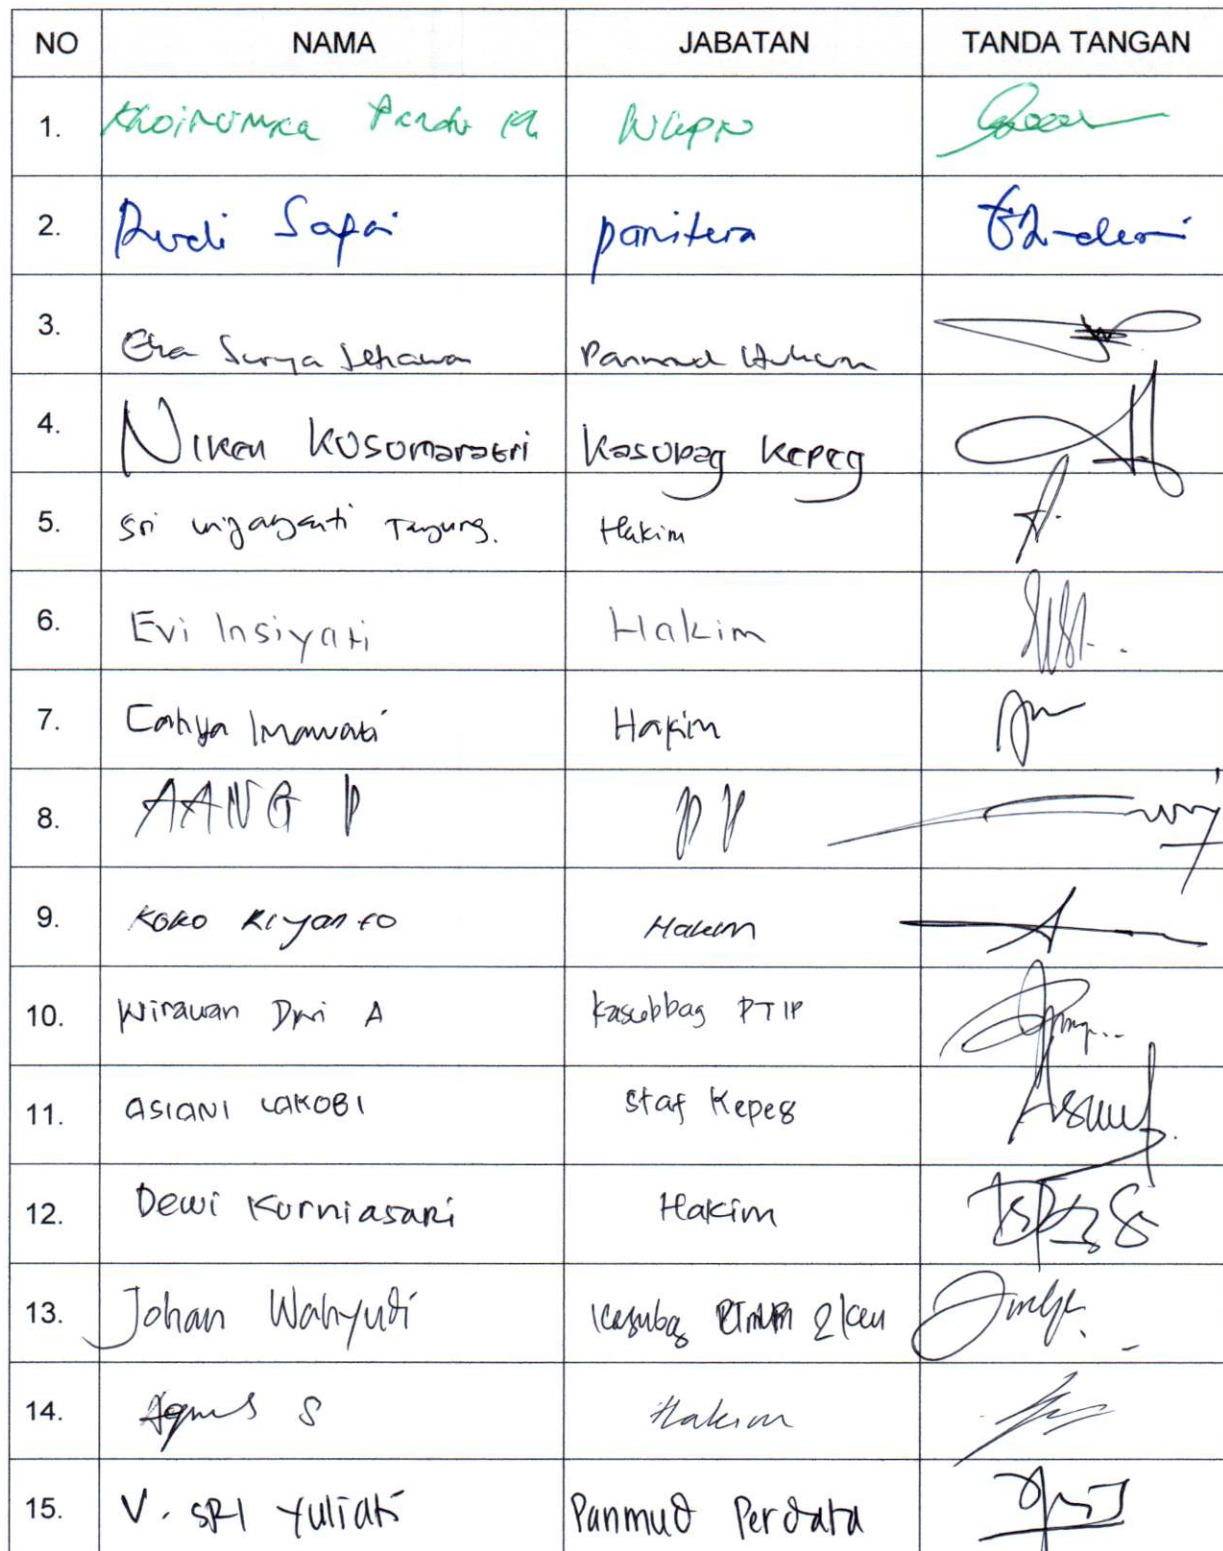 NO NAMA JABATAN TANDA TANGAN
1. WKPN
2. Rudi Sapai panitera
3. Eka Surya Setiawan Panmud Hukum
4. Niken Kusumarastri Kasubag Kepeg
5. Sri wijayanti Tanjung. Hakim
6. Evi Insiyati Hakim
7. Cahya Imawati Hakim
8. AANG P PP
9. KOKO RIYANTO Hakim
10. Wirawan Dwi A Kasubbag PTIP
11. ASIANI LAKOBI Staf Kepeg
12. Dewi Kurniasari Hakim
13. Johan Wahyudi Kasubag
14. Agus S Hakim
15. V. SRI Yuliati Panmud Perdata